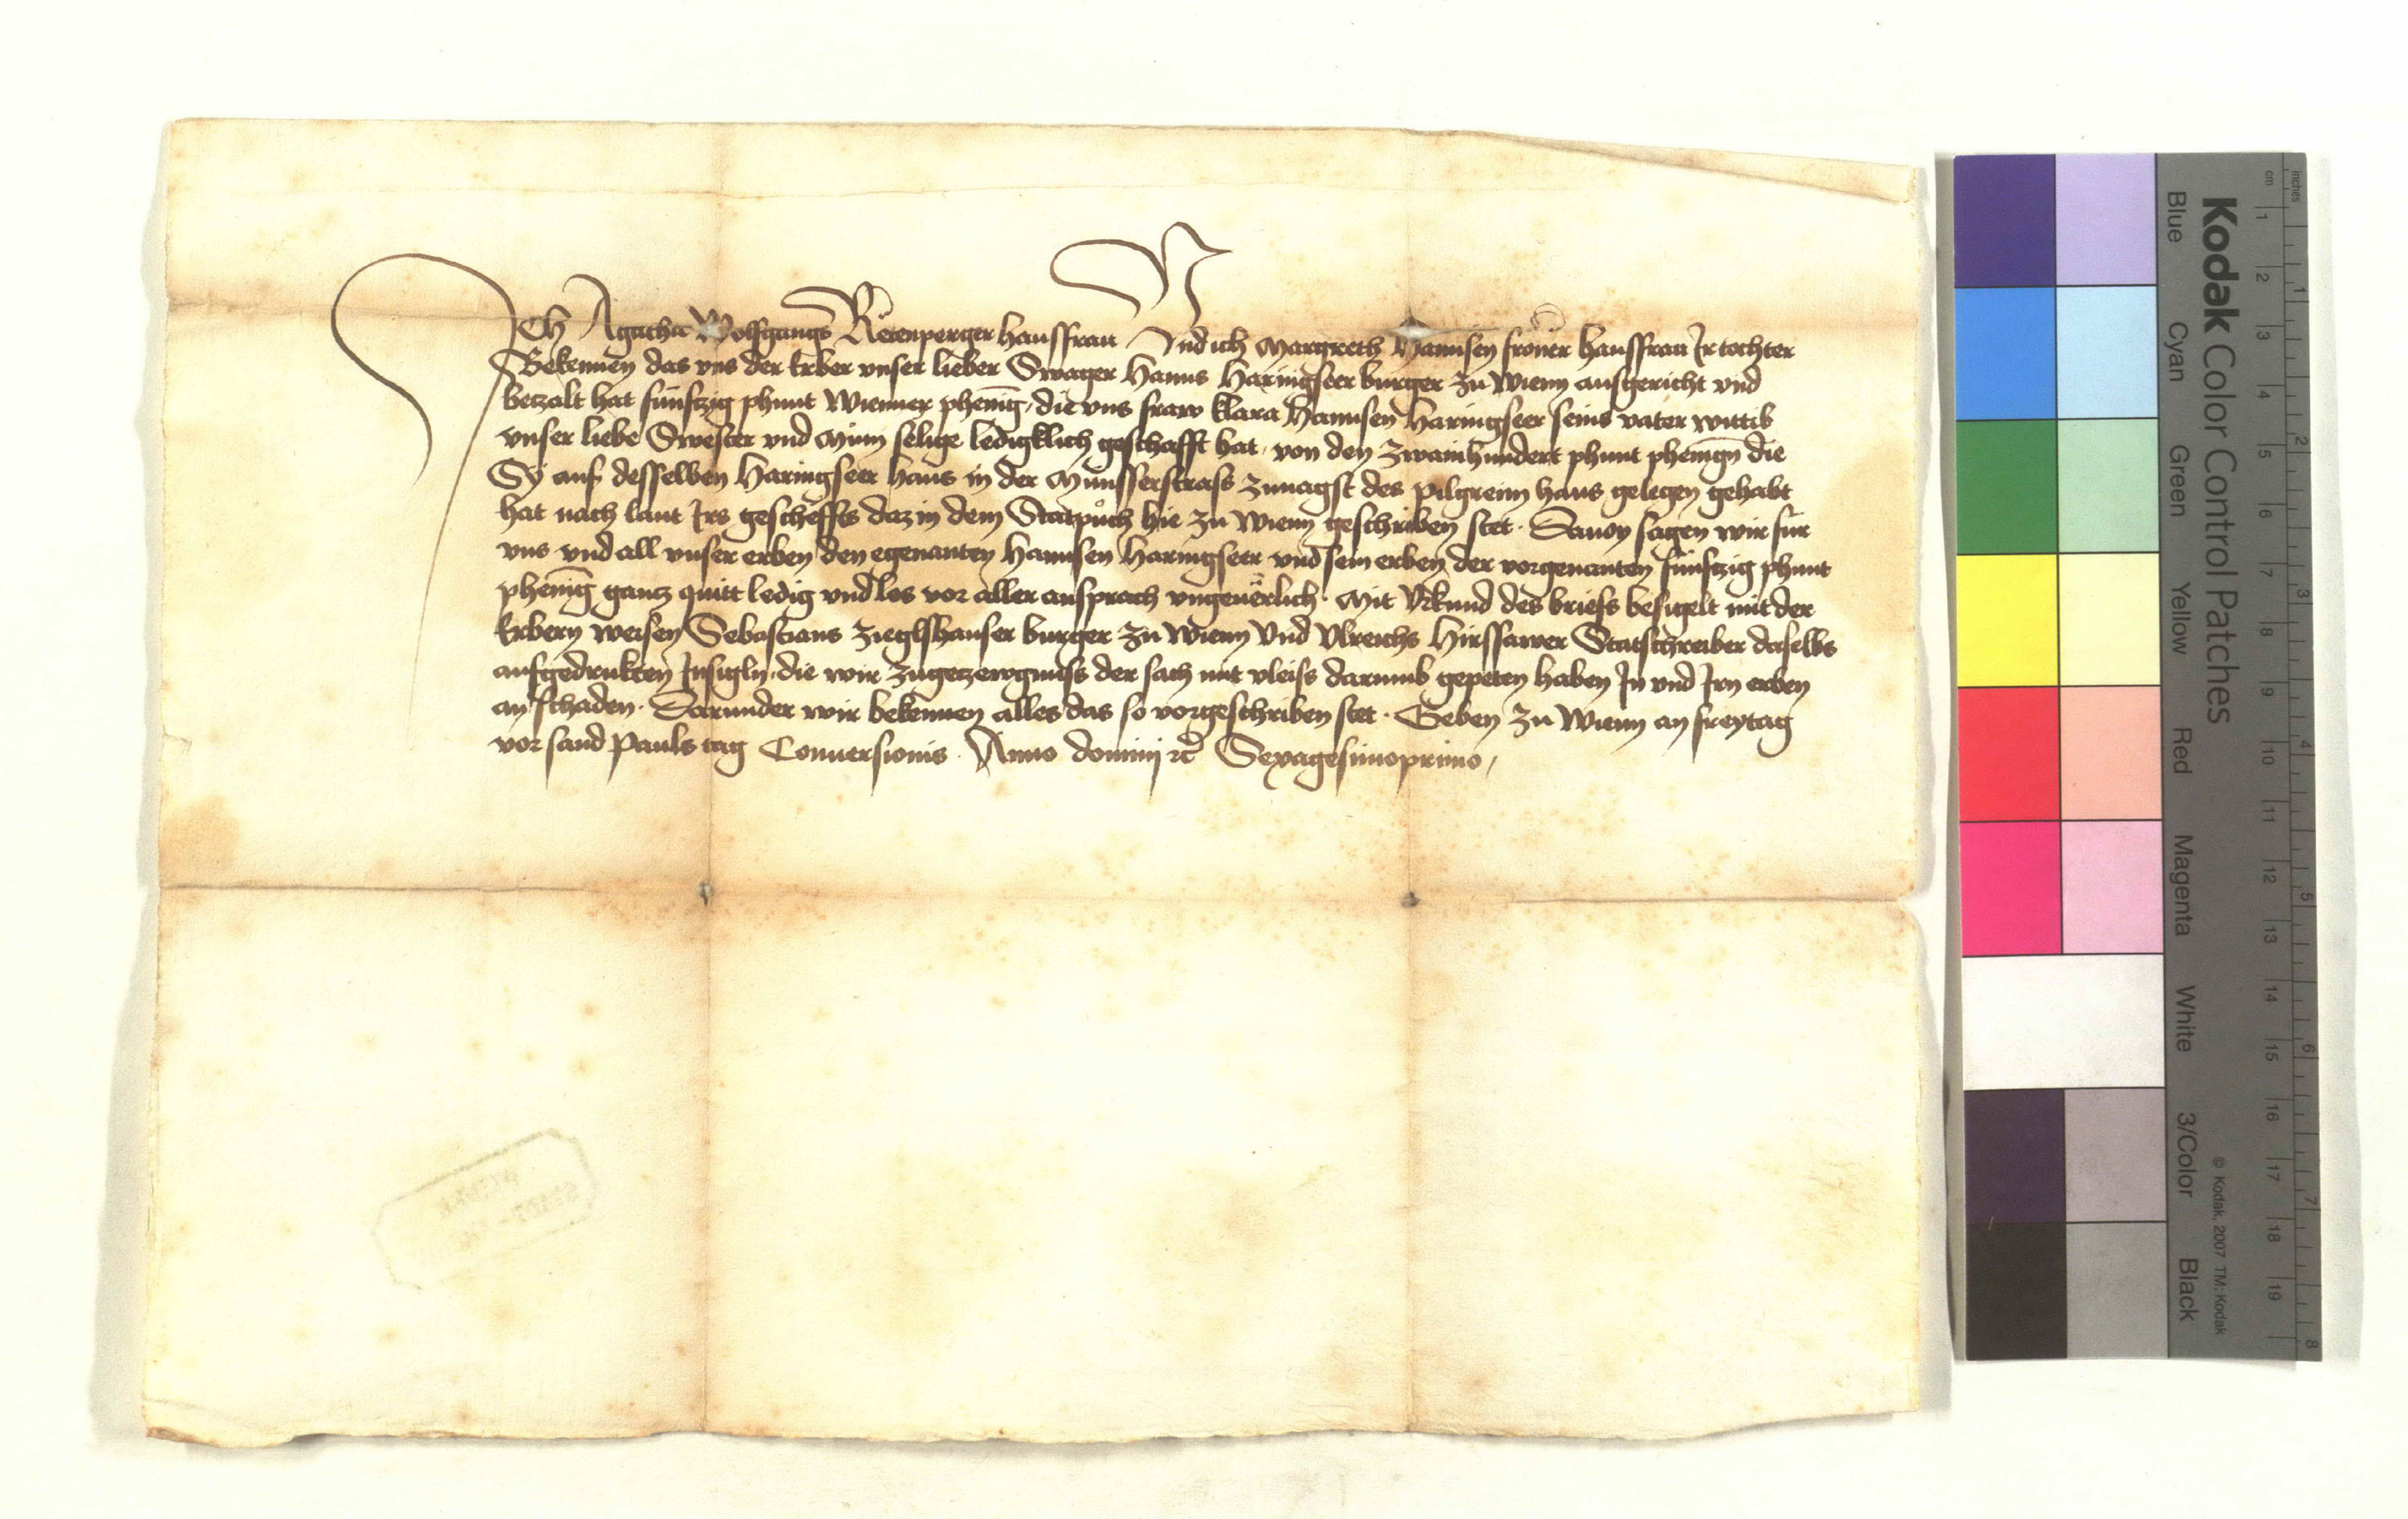 Ich Agatha Wolfgangs Retenperger hausfrau Vnd ich Margreth Hannsen froner hausfrau Ir tochter
Bekennen das vns der Erber vnser lieber Swager Hanns Haringseer burger zu Wienn ausgericht vnd
betzalt hat fünftzig phunt Wienner phenīg, die vns fraw klara Hannsen Haringseer seins vater wittib
vnser liebe Swester vnd Mum selige ledigklich geschafft hat, von den zwainhundert phunt phenīgn die
Sy auf desselben Haringseer haus in der Münsserstrass zunagst des pilgreim haus gelegen gehabt
hat nach laut Irs gescheffts daz in dem Statpůch hie zu Wienn geschriben stet. Dauon sagen wir für
vns vnd all vnser erben den egenanten Hannsen Haringseer vnd sein erben der vorgenanten fünftzig phunt
phenīg gantz quitt ledig vnd los vor aller ansprach vngeuerlich. Mit Vrkund des briefs besigelt mit der
Erbern weisen Sebastians Zieglhauser burger zu Wienn Vnd Vlreichs Hirssawer Statschreiber daselbs
aufgedrukten Insigln, die wir zugetzewgnuss der sach mit vleiss darumb gepeten haben In vnd Irn erben
an schaden. Darunder wir bekennen alles das so vorgeschriben stet. Geben zu Wienn an freytag
vor sand Pauls tag Conuersionis. Anno domini ꝛc̄ Sexagesimoprimo,
Kodak Color Control Patches
Blue Cyan Green Yellow Red Magenta White 3/Color Black
© Kodak, 2007 TM: Kodak
cm 1 2 3 4 5 6 7 8 9 10 11 12 13 14 15 16 17 18 19
inches 1 2 3 4 5 6 7 8